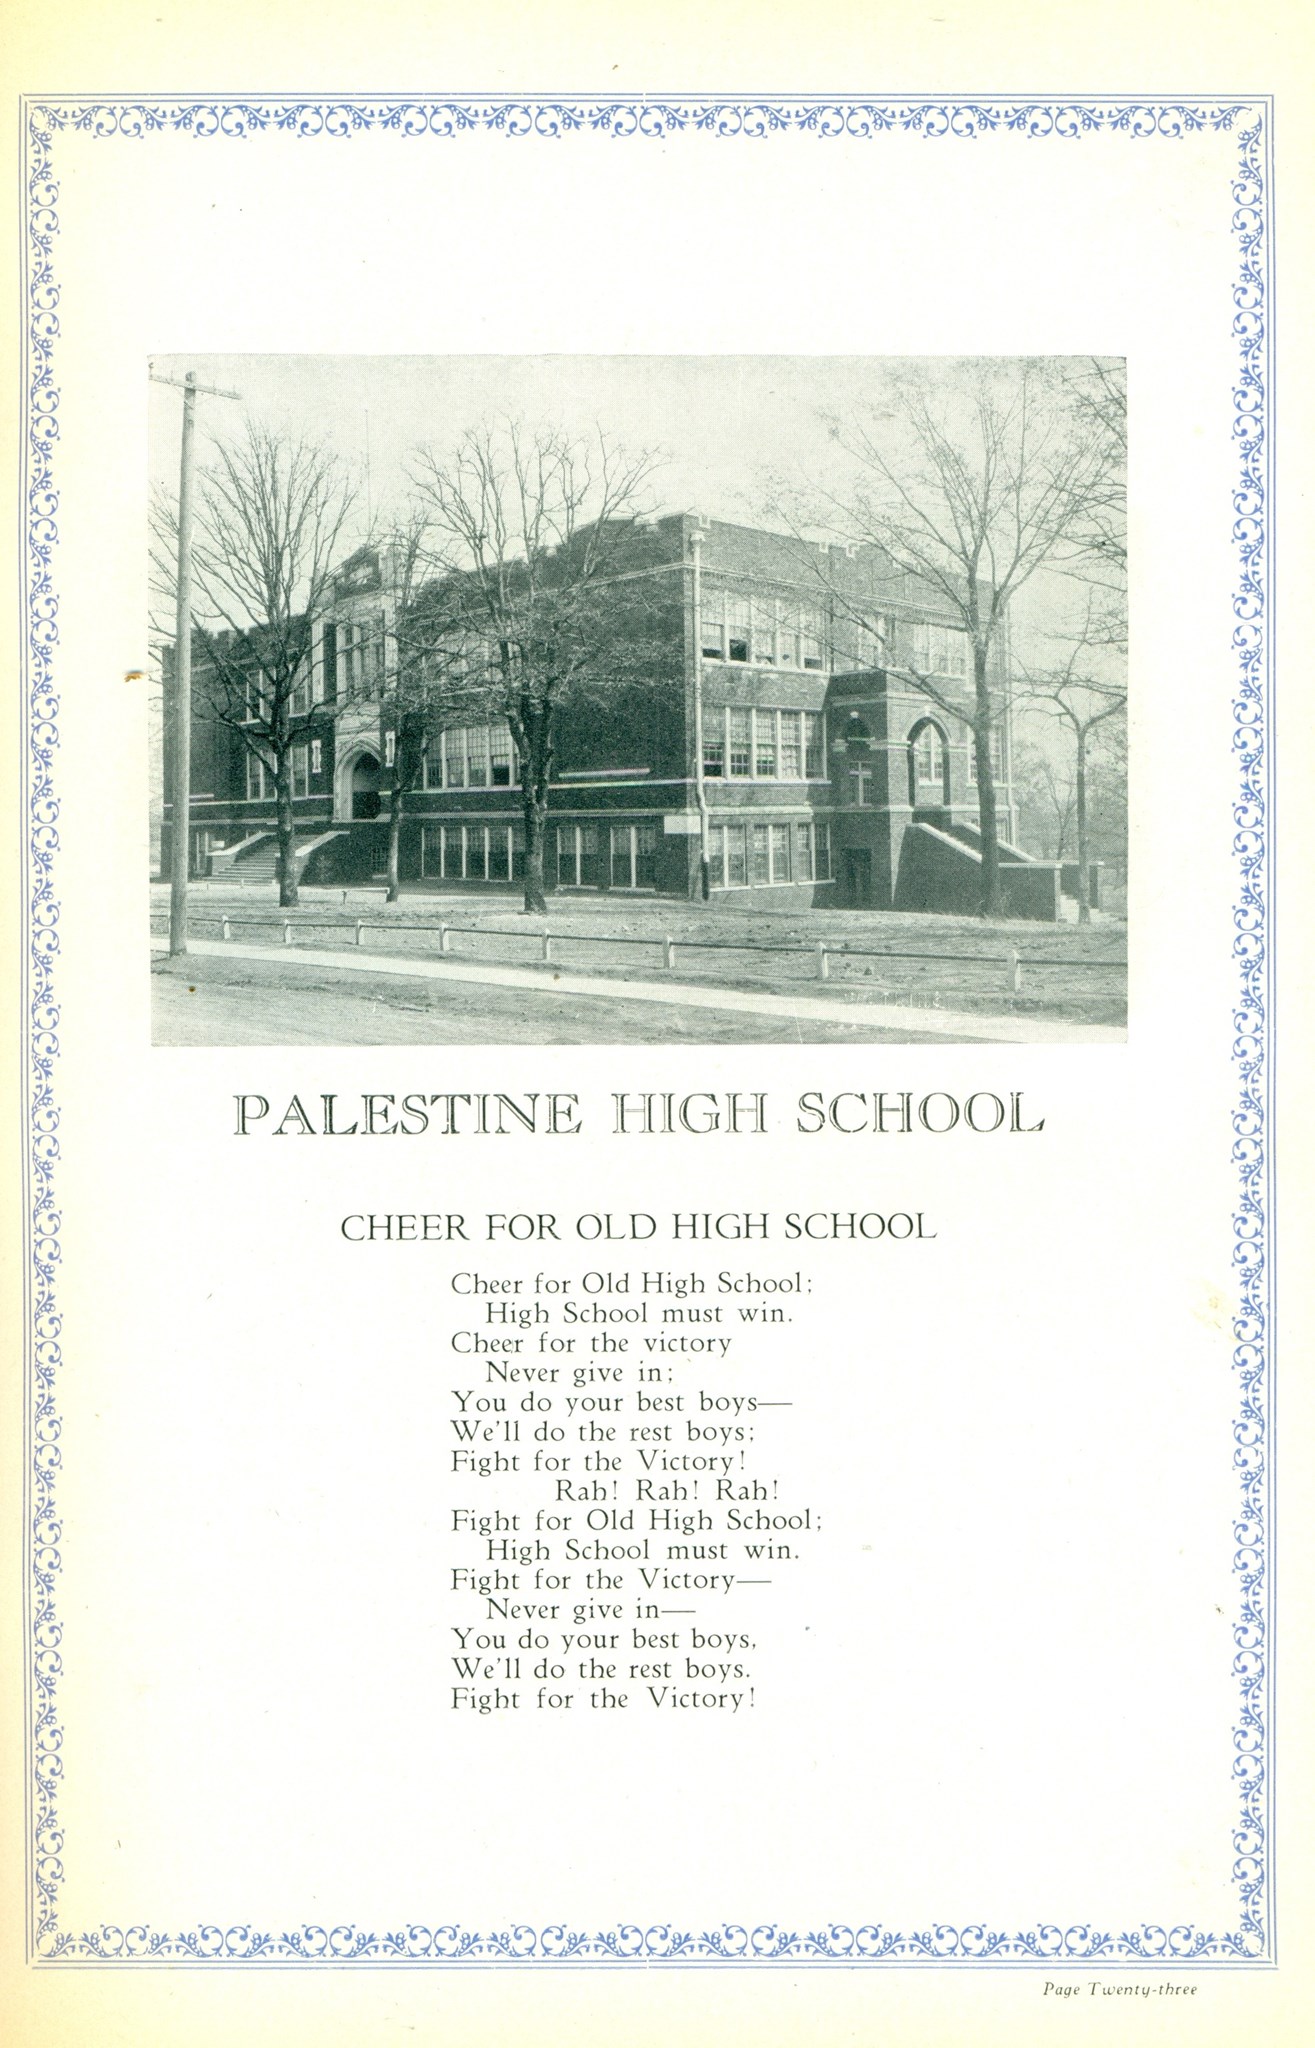 PALESTINE HIGH SCHOOL
CHEER FOR OLD HIGH SCHOOL
Cheer for Old High School;
High School must win.
Cheer for the victory
Never give in;
You do your best boys—
We'll do the rest boys;
Fight for the Victory!
Rah! Rah! Rah!
Fight for Old High School;
High School must win.
Fight for the Victory—
Never give in—
You do your best boys,
We'll do the rest boys.
Fight for the Victory!
Page Twenty-three